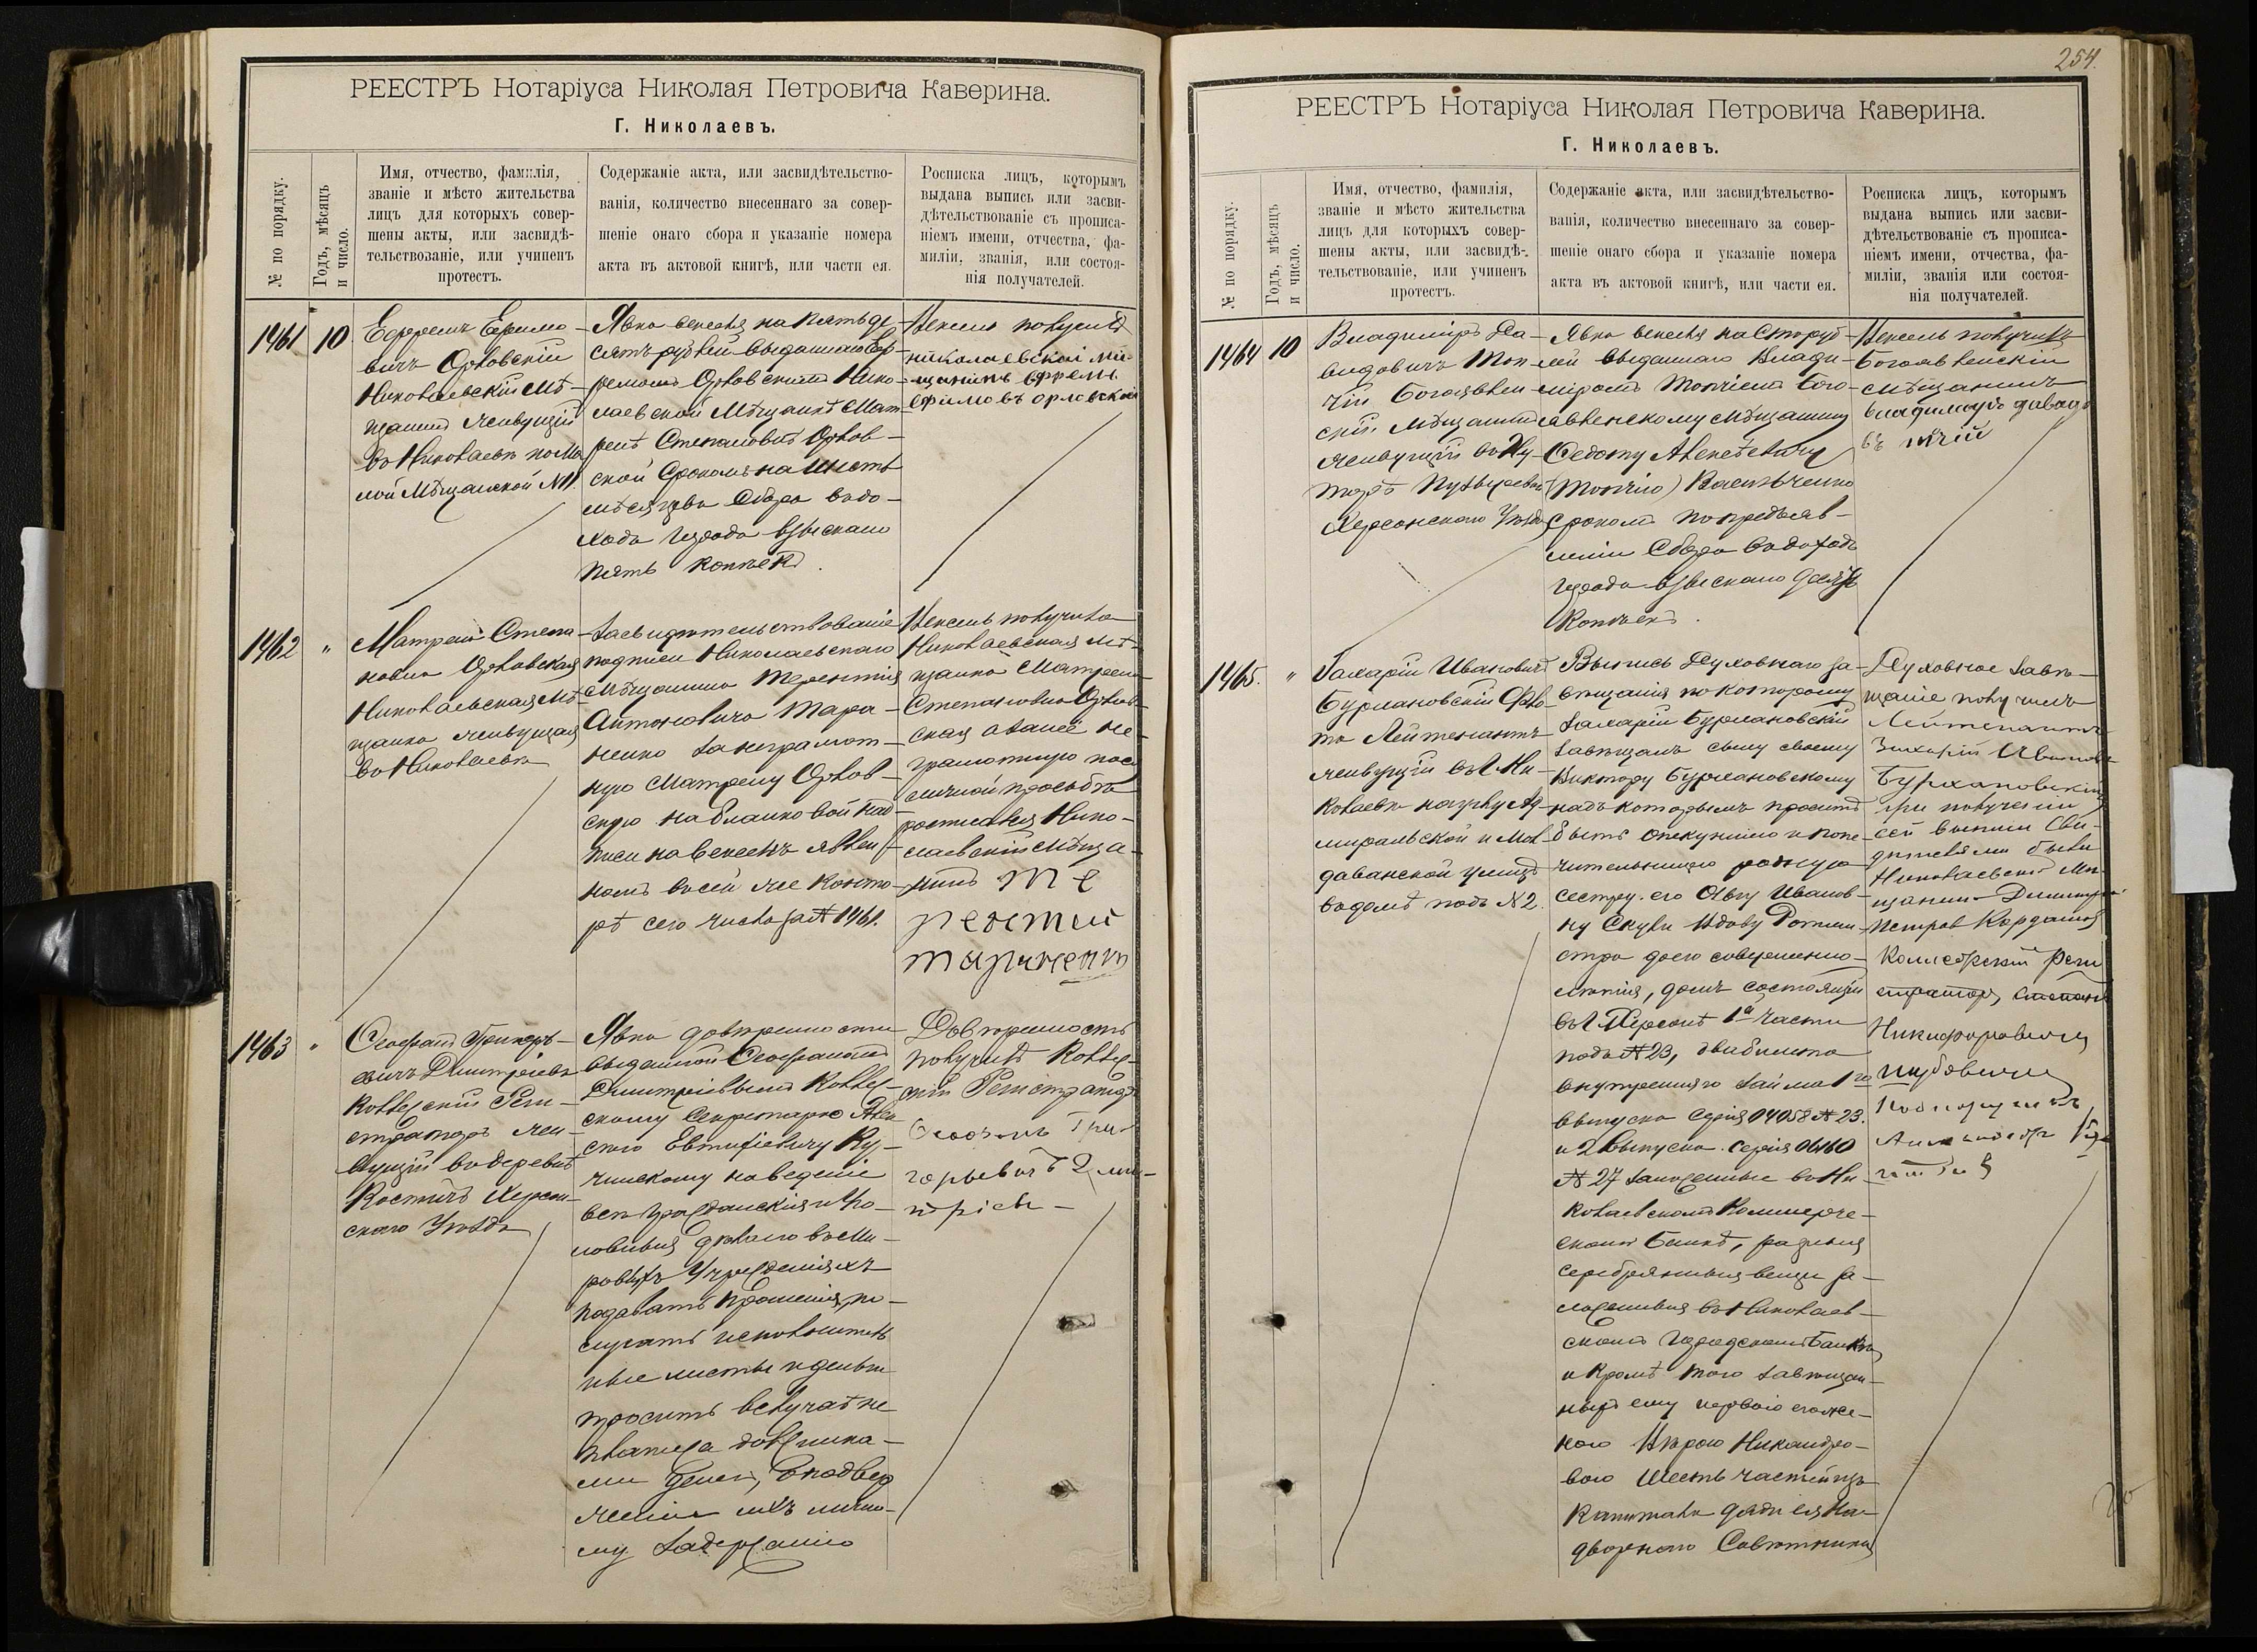 РЕЕСТРЪ Нотаріуса Николая Петровича Каверина.
Г. Николаевъ.
№ по порядку.
Годъ, мѣсяцъ
и число.
Имя, отчество, фамилія,
званіе и мѣсто жительства
лицъ для которыхъ совер-
шены акты, или засвидѣ-
тельствованіе, или учиненъ
протестъ.
Содержаніе акта, или засвидѣтельство-
ванія, количество внесеннаго за совер-
шеніе онаго сбора и указаніе номера
акта въ актовой книгѣ, или части ея.
Росписка лицъ, которымъ
выдана выпись или засви-
дѣтельствованіе съ прописа-
ніемъ имени, отчества, фа-
миліи, званія, или состоя-
нія получателей.
1461
10
Ефремъ Ефимо-
вичъ Орловскій
Николаевскій Мѣ-
щанинъ живущій
въ Николаевѣ по Ма
лой Мѣщанской №11.
Явка векселя на пятьде-
сятъ рублей выданнаго Еф-
ремомъ Орловскимъ Нико-
лаевской Мѣщанкѣ Мат-
ренѣ Степановнѣ Орлов-
ской Срокомъ на шесть
мѣсяцевъ Сбора въ до-
ходъ города взыскано
пять копѣекъ.
Вексель получилъ
николаевскоі ме-
щанинъ ефремъ
ефимовъ орловскій
1462
"
Матрена Степа-
новна Орловская
Николаевская Мѣ-
щанка живущая
въ Николаевѣ
Засвидѣтельствованіе
подписи Николаевскаго
Мѣщанина Терентія
Антоновича Тара-
ненко за неграмот-
ную Матрену Орлов-
скую на бланковой над-
писи на векселѣ явлен-
номъ въ сей же конто-
рѣ сего числа за №1461.
Вексель получила
Николаевская Мѣ-
щанка Матрена
Степановна Орлов-
ская а за неё не-
грамотную по ея
личной просьбѣ
росписался Нико-
лаевскій Мѣща-
нинъ Те
рентий
тараненко
1463
"
Феофанъ Григорь-
евичъ Дмитріевъ
Коллежскій Реги-
страторъ жи-
вущій въ деревнѣ
Костичѣ Херсон-
скаго Уѣзда
Явка довѣренности
выданной Феофаномъ
Дмитріевымъ Коллеж-
скому Секретарю Алек
сѣю Евтифіевичу Ку-
чинскому на веденіе
всѣхъ гражданскихъ и уго-
ловныхъ дѣлъ его въ Ми-
ровыхъ Учрежденіяхъ
подавать прошенія, по-
лучать исполнитель-
ные листы и деньги
просить въ случаѣ не
платежа должника-
ми денегъ, о подвер
женіи ихъ лично-
му задержанію
Довѣренность
получилъ Коллеж-
скій Регистраторъ
Феофанъ Гри-
горьевичъ Дми-
тріевъ
254.
РЕЕСТРЪ Нотаріуса Николая Петровича Каверина.
Г. Николаевъ.
№ по порядку.
Годъ, мѣсяцъ
и число.
Имя, отчество, фамилія,
званіе и мѣсто жительства
лицъ для которыхъ совер-
шены акты, или засвидѣ-
тельствованіе, или учиненъ
протестъ.
Содержаніе акта, или засвидѣтельство-
ванія, количество внесеннаго за совер-
шеніе онаго сбора и указаніе номера
акта въ актовой книгѣ, или части ея.
Росписка лицъ, которымъ
выдана выпись или засви-
дѣтельствованіе съ прописа-
ніемъ имени, отчества, фа-
миліи, званія или состоя-
нія получателей.
1464
10
Владиміръ Да-
видовичъ Топ-
чій Богоявлен-
скій Мѣщанинъ
живущій въ Ху-
торѣ
Херсонскаго Уѣзда
Явка векселя на сто руб-
лей выданнаго Влади-
міромъ Топчіемъ Бого-
явленскому Мѣщанину
Федоту Алексѣевичу
(Топчію) Васильченко
срокомъ по предъяв-
леніи Сбора въ доходъ
города взыскано десять
копѣекъ.
Вексель получилъ
Богоявленскій
Мѣщанинъ
владимиръ давидо
въ пчій
1465.
"
Захарій Ивановичъ
Бурхановскій Фло-
та Лейтенантъ
живущій въ г. Ни-
колаевѣ на углу Ад-
миральской и Мол-
даванской улицъ
въ домѣ подъ №2.
Выпись Духовнаго за-
вѣщанія по которому
Захарій Бурхановскій
завѣщалъ сыну своему
Виктору Бурхановскому
надъ которымъ проситъ
быть опекуншею и попе-
чительницею родную
сестру его Ольгу Иванов-
ну вдову Ротми-
стра до его совершенно-
лѣтія, домъ состоящій
въ г. Херсонѣ 1й части
подъ №23, два билета
внутренняго займа 1го
выпуска Серія 04058 №23.
и 2 выпуска. Серія 06160
№27 заложенные въ Ни-
колаевскомъ Коммерче-
скомъ Банкѣ, разныя
серебрянныя вещи за-
ложенныя въ Николаев-
скомъ Городскомъ Банкѣ
и кромѣ того завѣщан-
ныхъ ему первою его же-
ною Вѣрою Никандро-
вою шесть частей изъ
капитала дяди ея На-
дворнаго Совѣтника
Духовное завѣ-
щаніе получилъ
Лейтенантъ
Захарій Иванов
Бурхановскій
при полученіи
сей выписи сви-
дѣтелями были
Николаевскій Мѣ-
щанинъ Димитрій
Петровъ Кардашовъ
Коллежскій Реги
страторъ, Степанъ
Никифоровичъ
Подпоручикъ